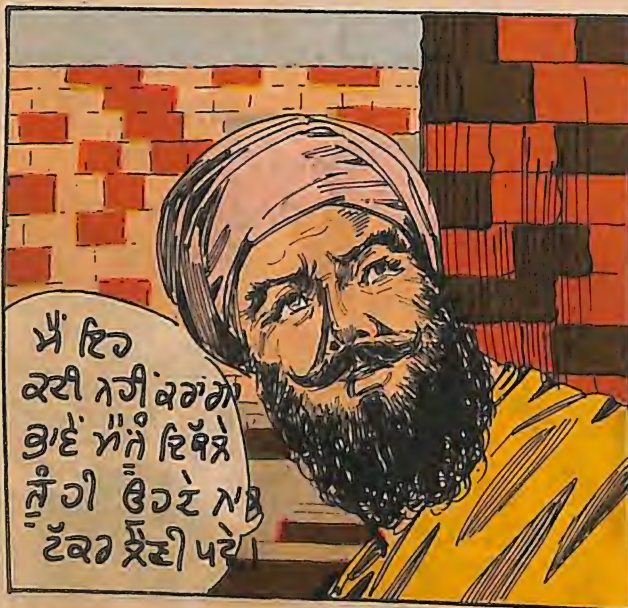 ਮੈਂ ਇਹ
ਕਦੀ ਨਹੀਂ ਕਰਾਂਗਾ
ਭਾਵੇਂ ਮੈਨੂੰ ਇਕੱਲੇ
ਨੂੰ ਹੀ ਉਹਦੇ ਨਾਲ
ਟੱਕਰ ਲੈਣੀ ਪਵੇ।